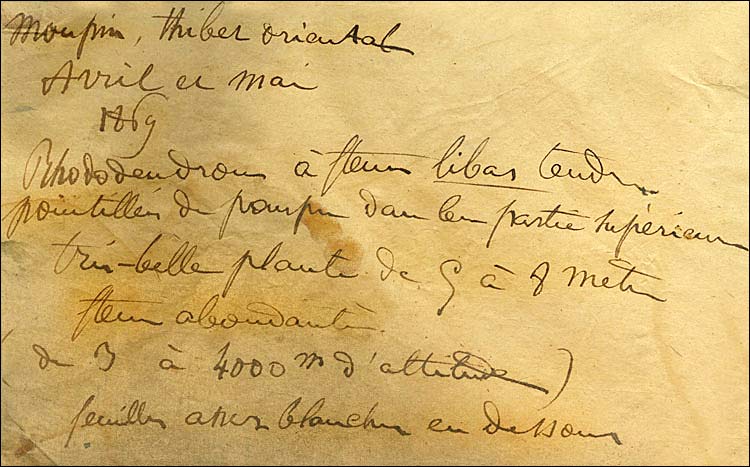 Moupin, thibet oriental
Avril et mai
1869
Rhododendrons à fleurs lilas tendre
pointillés de pourpre dans leur partie supérieure
très-belle plante de 5 à 8 mètres
fleurs abondantes
(de 3 à 4000 m d'altitude)
feuilles assez blanches en dessous